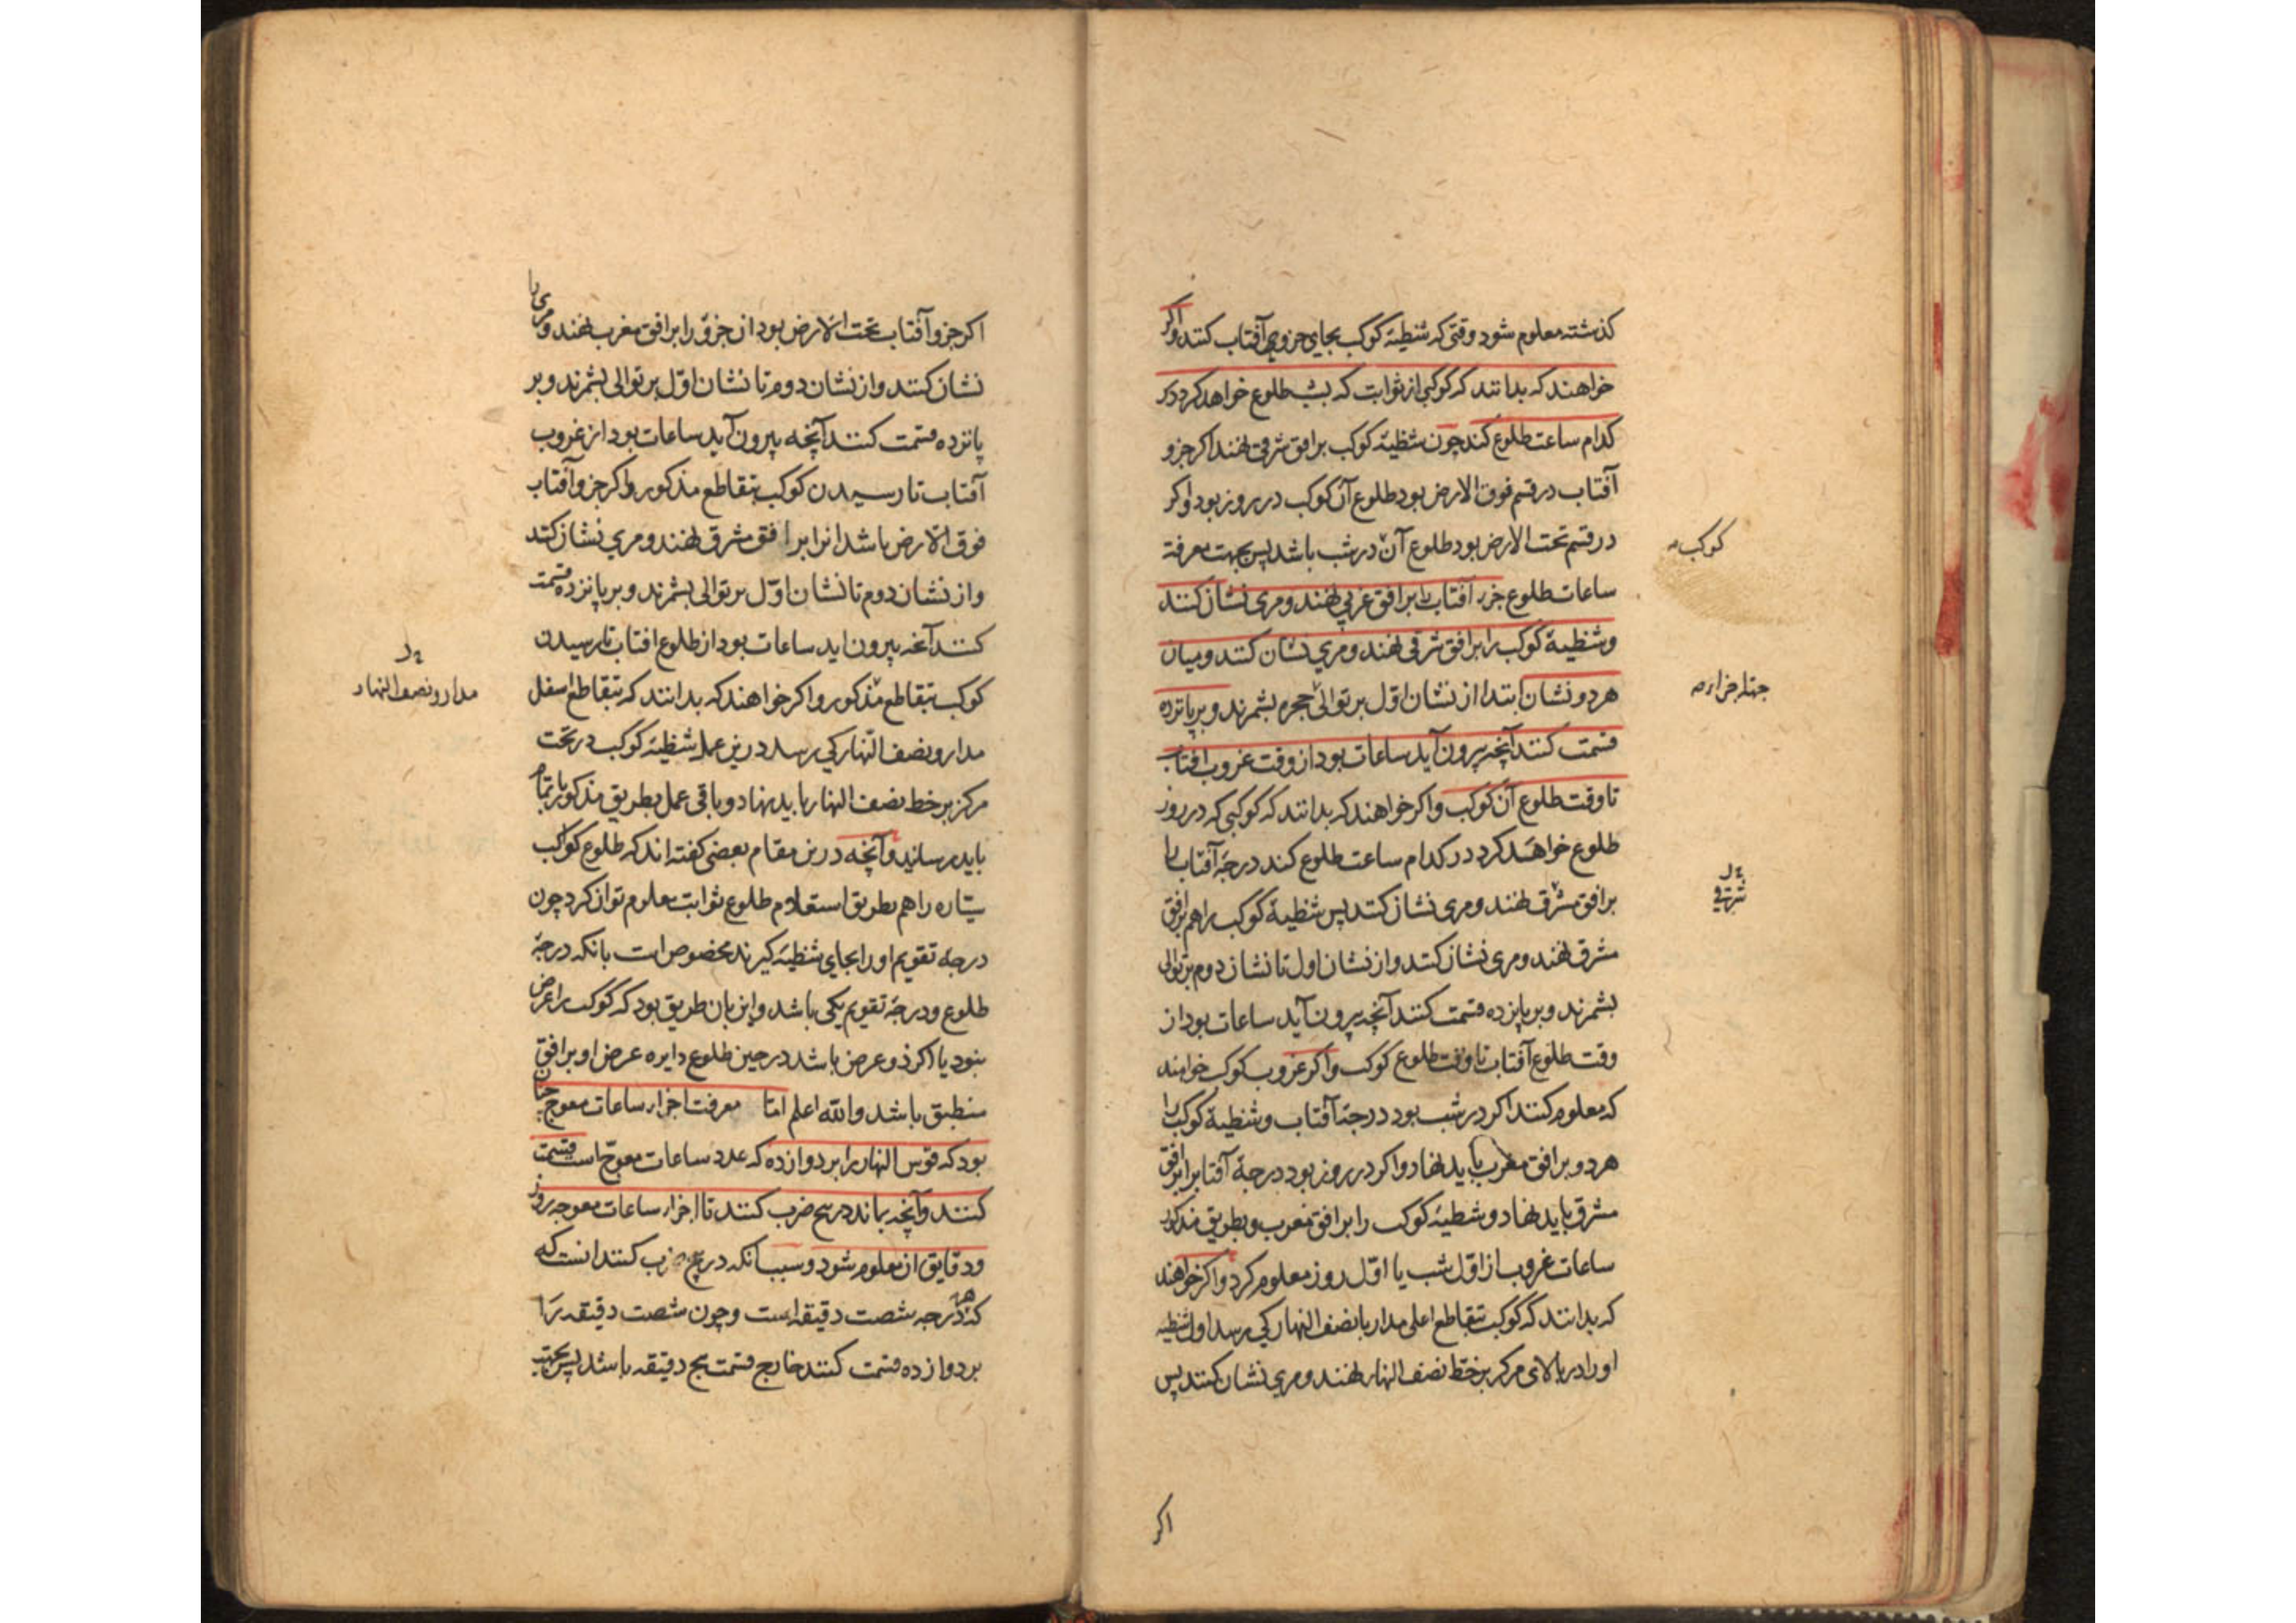 كذشته معلوم شود وقتى كه شظيهٔ كوكب بجاى جزوى آفتاب كنند واكر
خواهند كه بدانند كه كوكبى از ثوابت كه بشب طلوع خواهد كرد در
كدام ساعت طلوع كند چون شظيهٔ كوكب بر افق شرقى نهند اكر جزو
آفتاب در قسم فوق الارض بود طلوع آن كوكب در روز بود و اكر
در قسم تحت الارض بود طلوع آن در شب باشد پس بجهت معرفة
كوكب
ساعات طلوع جزء آفتاب را بر افق غربى نهند و مرى نشان كنند
و شظيهٔ كوكب را بر افق شرقى نهند و مرى نشان كنند و ميان
هر دو نشان ابتدا از نشان اول بر توالى حجره بشمرند و بر پانزده
اجزاء
قسمت كنند آنچه بيرون آيد ساعات بود از وقت غروب افتاب
تا وقت طلوع آن كوكب و اكر خواهند كه بدانند كه كوكبى كه در روز
طلوع خواهد كرد در كدام ساعت طلوع كند درجهٔ آفتاب را
بر افق مشرق نهند و مرى نشان كنند پس شظيهٔ كوكب را هم بر افق
مشرق نهند و مرى نشان كنند و از نشان اول تا نشان دوم بر توالى
بشمرند و بر پانزده قسمت كنند آنچه بيرون آيد ساعات بود از
وقت طلوع آفتاب تا وقت طلوع كوكب و اكر غروب كوكب خواهند
كه معلوم كنند اكر در شب بود درجهٔ آفتاب و شظيهٔ كوكب را
هر دو بر افق مغرب بايد نهاد و اكر در روز بود درجهٔ آفتاب را بر افق
مشرق بايد نهاد و شظيهٔ كوكب را بر افق مغرب و بطريق مذكور
ساعات غروب از اوّل شب يا اوّل روز معلوم كرد و اكر خواهند
كه بدانند كه كوكب بتقاطع اعلى مدار با نصف النهار كى رسد اول شظيه
او را در بالاى مركز بر خط نصف النهار نهند و مرى نشان كنند پس
اكر
اكر جزو آفتاب تحت الارض بود ان جزو را بر افق مغرب نهند و مرى را
نشان كنند و از نشان دوم تا نشان اوّل بر توالى بشمرند و بر
پانزده قسمت كنند آنچه بيرون آيد ساعات بود از غروب
آفتاب تا رسيدن كوكب بتقاطع مذكور و اكر جزو آفتاب
فوق الارض باشد انرا بر افق مشرق نهند و مرى نشان كنند
و از نشان دوم تا نشان اوّل بر توالى بشمرند و بر پانزده قسمت
كنند آنچه بيرون ايد ساعات بود از طلوع افتاب تا رسيدن
كوكب بتقاطع مذكور و اكر خواهند كه بدانند كه بتقاطع اسفل
مدار و نصف النهار
مدار و نصف النهار كى رسد درين عمل شظيهٔ كوكب در تحت
مركز بر خط نصف النهار بايد نهاد و باقى عمل بطريق مذكور باتمام
بايد رسانيد و آنچه درين مقام بعضى كفته اند كه طلوع كواكب
سيّاره را هم بطريق استعلام طلوع ثوابت معلوم توان كرد چون
درجهٔ تقويم او را بجاى شظيهٔ كيرند مخصوص است بانكه درجهٔ
طلوع و درجهٔ تقويم يكى باشد و اين بان طريق بود كه كوكب را عرض
نبود يا اكر ذو عرض باشد در حين طلوع دايره عرض او بر افق
منطبق باشد والله اعلم امّا معرفت اجزاء ساعات معوج چنان
بود كه قوس النهار را بر دوازده كه عدد ساعات معوج است قسمت
كنند و آنچه بماند در پنج ضرب كنند تا اجزاء ساعات معوجه روز
و دقايق ان معلوم شود و سبب انكه در پنج ضرب كنند انست كه
كه هر درجه شصت دقيقه است و چون شصت دقيقه را
بر دوازده قسمت كنند خارج قسمت پنج دقيقه باشد پس بجهت